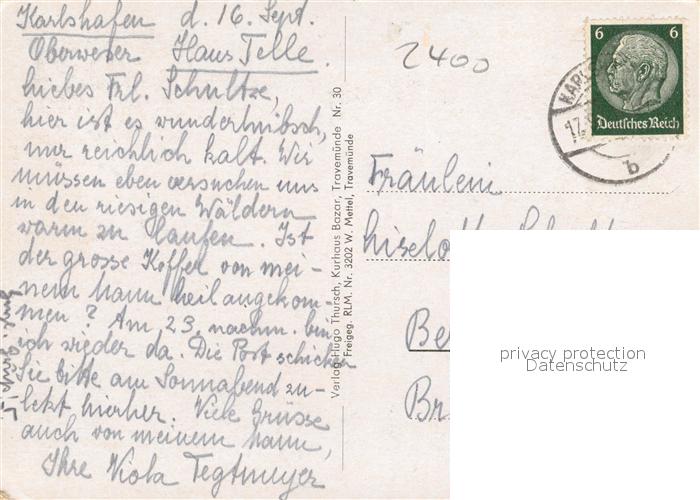 Karlshafen d. 16. Sept.
Oberweser Haus Telle.
Liebes Frl. Schultze,
hier ist es wunderhübsch,
nur reichlich kalt. Wir
müssen eben versuchen uns
in den riesigen Wäldern
warm zu laufen. Ist
der grosse Koffer von mei-
nem Mann heil angekom-
men? Am 23. nachm. bin
ich wieder da. Die Post schicken
Sie bitte am Sonnabend zu-
letzt hierher. Viele Grüsse
auch von meinem Mann,
Ihre Viola Tegtmeyer
Verlag Hugo Thursch, Kurhaus Bazar, Travemünde Nr. 30
Freigeg. RLM. Nr. 3202 W. Mettel, Travemünde
2400
6 6
Deutsches Reich
KARL
17.
b
Fräulein
Be
Br
privacy protection
Datenschutz